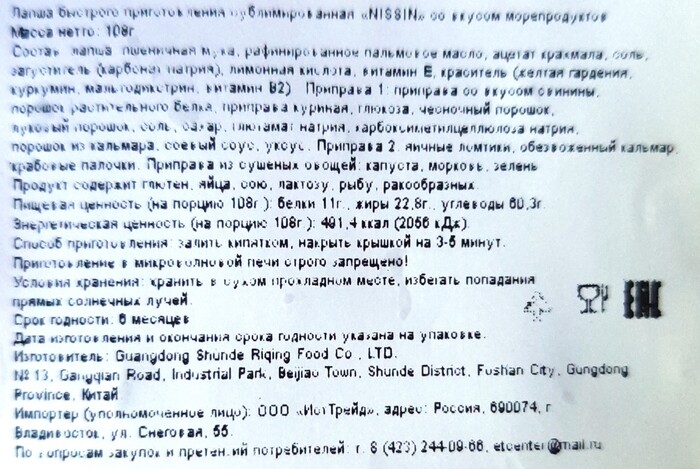 Лапша быстрого приготовления сублимированная «NISSIN» со вкусом морепродуктов
Масса нетто: 108г
Состав: лапша: пшеничная мука, рафинированное пальмовое масло, ацетат крахмала, соль,
загуститель (карбонат натрия), лимонная кислота, витамин Е, краситель (желтая гардения,
куркумин, мальтодикстрин, витамин В2). Приправа 1: приправа со вкусом свинины,
порошок растительного белка, приправа куриная, глюкоза, чесночный порошок,
луковый порошок, соль, сахар, глютамат натрия, карбоксиметилцеллюлоза натрия,
порошок из кальмара, соевый соус, уксус. Приправа 2: яичные ломтики, обезвоженный кальмар,
крабовые палочки. Приправа из сушеных овощей: капуста, морковь, зелень
Продукт содержит глютен, яйца, сою, лактозу, рыбу, ракообразных.
Пищевая ценность (на порцию 108г): белки 11г., жиры 22,8г., углеводы 60,3г.
Энергетическая ценность (на порцию 108г): 491,4 ккал (2056 кДж).
Способ приготовления: залить кипятком, накрыть крышкой на 3-5 минут.
Приготовление в микроволновой печи строго запрещено!
Условия хранения: хранить в сухом прохладном месте, избегать попадания
прямых солнечных лучей.
Срок годности: 6 месяцев
Дата изготовления и окончания срока годности указана на упаковке.
Изготовитель: Guangdong Shunde Riqing Food Co., LTD.
№ 13, Gangqian Road, Industrial Park, Beijiao Town, Shunde District, Foshan City, Gungdong
Province, Китай
Импортер (уполномоченное лицо): ООО «ИстТрейд», адрес: Россия, 690074, г
Владивосток, ул. Снеговая, 55.
По вопросам закупок и претензий потребителей: т. 8 (423) 244-09-66, etcenter@mail.ru
EAC